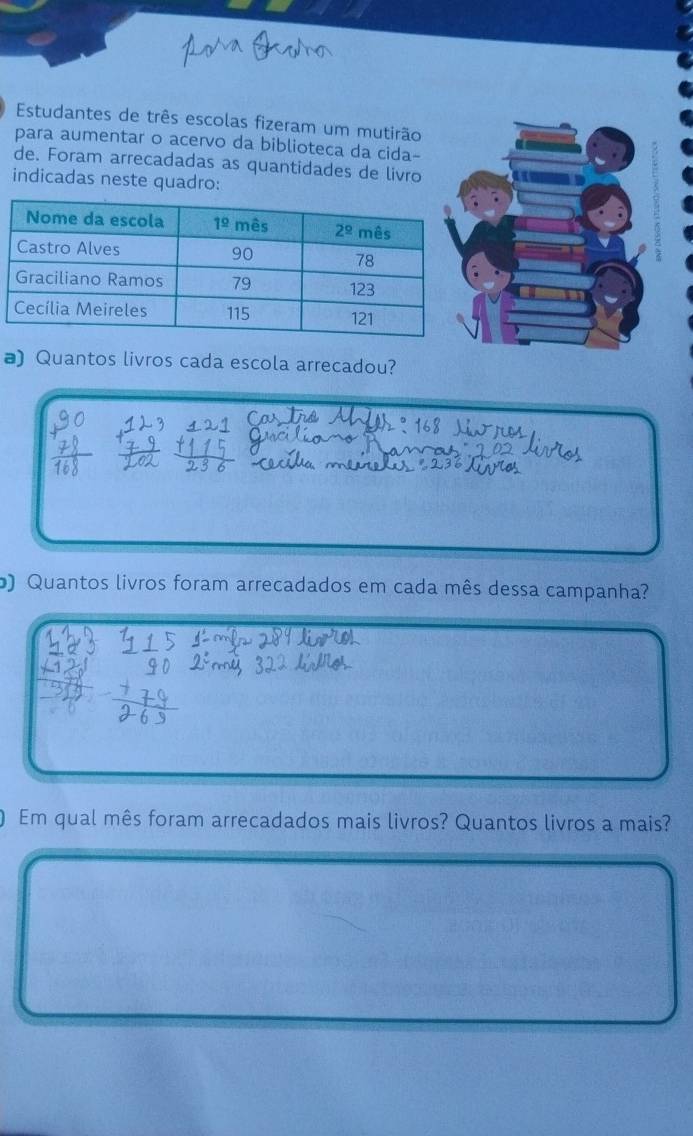 para
Estudantes de três escolas fizeram um mutirão
para aumentar o acervo da biblioteca da cida-
de. Foram arrecadadas as quantidades de livro
indicadas neste quadro:
Nome da escola 1º mês 2º mês
Castro Alves 90 78
Graciliano Ramos 79 123
Cecília Meireles 115 121
a) Quantos livros cada escola arrecadou?
90 123 121 Castro Alves: 168 livros
+78 +79 +115 graciliano Ramos: 202 livros
168 202 236 cecilia meireles: 236 livros
b) Quantos livros foram arrecadados em cada mês dessa campanha?
123 115 1º mês 284 livros
+121 90 2º mês 322 livros
+79
269
Em qual mês foram arrecadados mais livros? Quantos livros a mais?